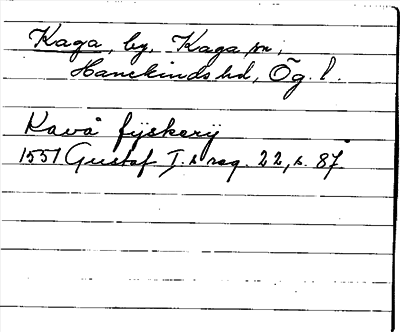 Kaga, by, Kaga sn,
Hanekinds hd, Ög. l.
Kavå fÿskerÿ
1551 Gustaf I.s reg. 22, s. 87.